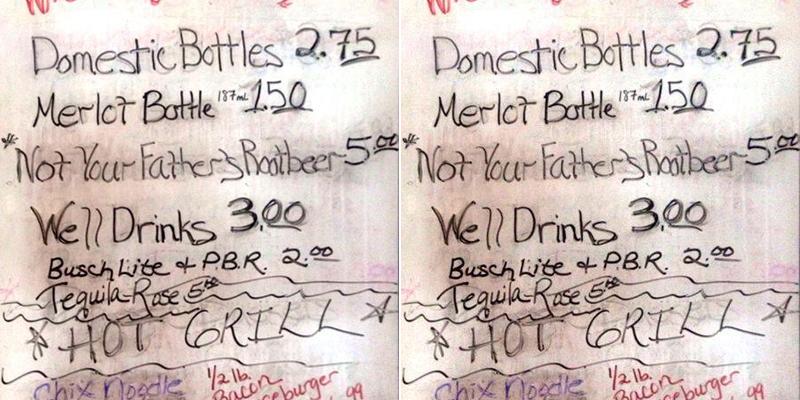 Domestic Bottles 2.75
Merlot Bottle 187mL 1.50
* Not Your Father's Rootbeer 5.00
Well Drinks 3.00
Busch Lite & P.B.R. 2.00
Tequila-Rose 5.00
* HOT GRILL *
Chix Noodle
1/2 lb.
Bacon
eburger .99
Domestic Bottles 2.75
Merlot Bottle 187mL 1.50
* Not Your Father's Rootbeer 5.00
Well Drinks 3.00
Busch Lite & P.B.R. 2.00
Tequila-Rose 5.00
* HOT GRILL *
Chix Noodle
1/2 lb.
Bacon
eburger .99